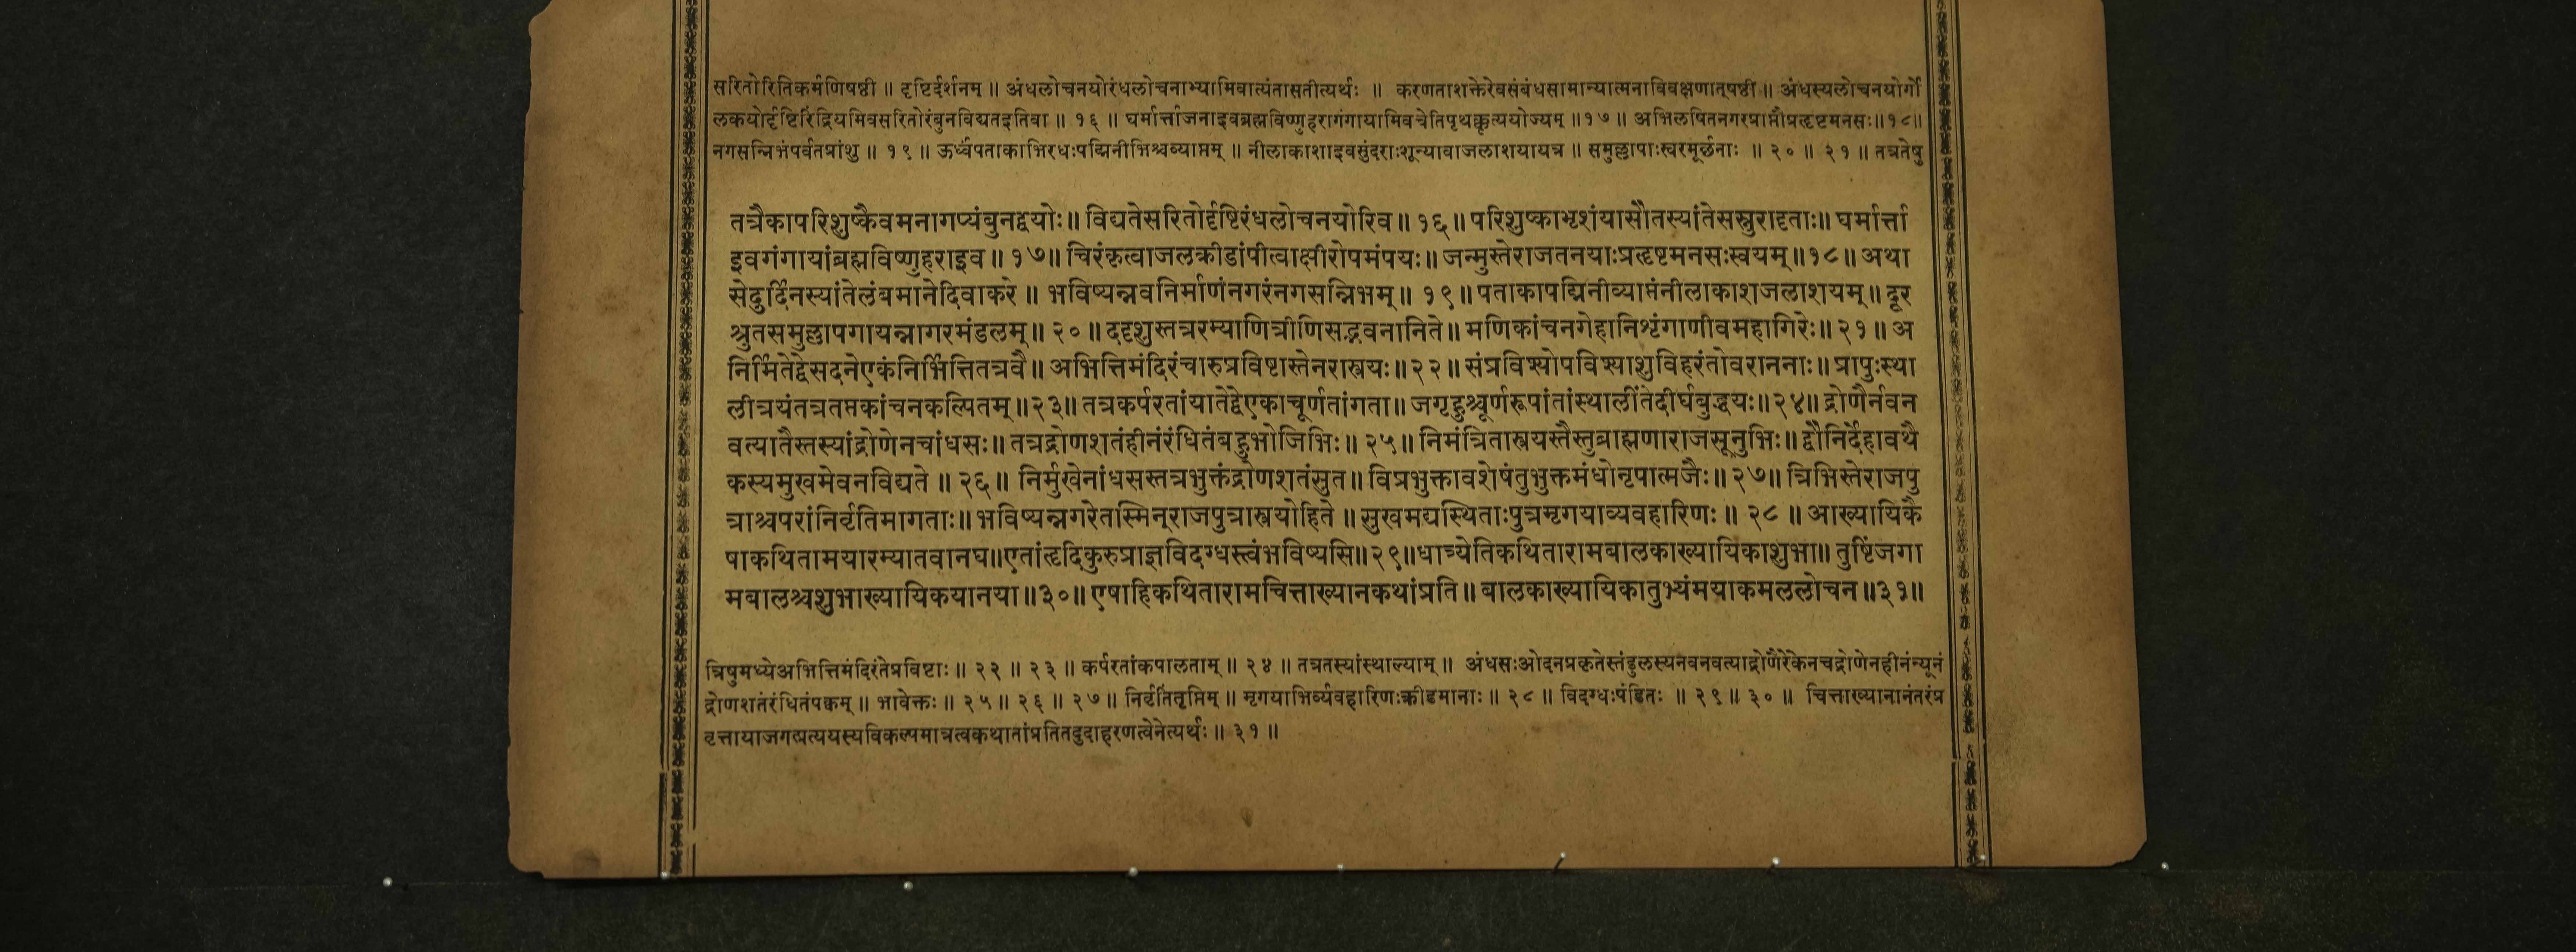 सरितोरितिकर्मणिषष्ठी ॥ दृष्टिर्दर्शनम् ॥ अंधलोचनयोरंधलोचनाभ्यामिवात्यंतासतीत्यर्थः ॥ करणताशक्तेरेवसंबंधसामान्यात्मनाविवक्षणात्षष्ठी ॥ अंधस्यलोचनयोर्गो
लकयोर्दृष्टिरिंद्रियमिवसरितोरंबुनविद्यतइतिवा ॥ १६ ॥ घर्मार्त्ताजनाइवब्रह्मविष्णुहरागंगायामिवचेतिपृथक्कृत्ययोज्यम् ॥१७॥ अभिलषितनगरप्राप्तौप्रहृष्टमनसः॥१८॥
नगसन्निभंपर्वतप्रांशु ॥ १९ ॥ ऊर्ध्वंपताकाभिरधःपद्मिनीभिश्चव्याप्तम् ॥ नीलाकाशाइवसुंदराःशून्यावाजलाशयायत्र ॥ समुल्लापाःस्वरमूर्छनाः ॥ २० ॥ २१ ॥ तत्रतेषु
तत्रैकापरिशुष्कैवमनागप्यंबुनद्वयोः॥ विद्यतेसरितोर्दृष्टिरंधलोचनयोरिव॥ १६॥ परिशुष्काभृशंयासौतस्यांतेसस्नुरादृताः॥ घर्मार्त्ता
इवगंगायांब्रह्मविष्णुहराइव॥ १७॥ चिरंकृत्वाजलक्रीडांपीत्वाक्षीरोपमंपयः॥ जन्मुस्तेराजतनयाःप्रहृष्टमनसःस्वयम्॥१८॥ अथा
सेदुर्दिनस्यांतेलंबमानेदिवाकरे॥ भविष्यन्नवनिर्माणंनगरंनगसन्निभम्॥ १९॥ पताकापद्मिनीव्याप्तंनीलाकाशजलाशयम्॥ दूर
श्रुतसमुल्लापगायन्नागरमंडलम्॥ २०॥ ददृशुस्तत्ररम्याणित्रीणिसद्भवनानिते॥ मणिकांचनगेहानिशृंगाणीवमहागिरेः॥ २१॥ अ
निर्मितेद्वेसदनेएकंनिर्भित्तितत्रवै॥ अभित्तिमंदिरंचारुप्रविष्टास्तेनरास्त्रयः॥२२॥ संप्रविश्योपविश्याशुविहरंतोवराननाः॥ प्रापुःस्था
लीत्रयंतत्रतप्तकांचनकल्पितम्॥२३॥ तत्रकर्परतांयातेद्वेएकाचूर्णतांगता॥ जगृहुश्चूर्णरूपांतांस्थालींतेदीर्घबुद्धयः॥२४॥ द्रोणैर्नवन
वत्यातैस्तस्यांद्रोणेनचांधसः॥ तत्रद्रोणशतंहीनंरंधितंबहुभोजिभिः॥ २५॥ निमंत्रितास्त्रयस्तैस्तुब्राह्मणाराजसूनुभिः॥ द्वौनिर्देहावथै
कस्यमुखमेवनविद्यते॥ २६॥ निर्मुखेनांधसस्तत्रभुक्तंद्रोणशतंसुत॥ विप्रभुक्तावशेषंतुभुक्तमंधोनृपात्मजैः॥ २७॥ त्रिभिस्तेराजपु
त्राश्चपरांनिर्वृतिमागताः॥ भविष्यन्नगरेतस्मिन्राजपुत्रास्त्रयोहिते॥ सुखमद्यस्थिताःपुत्रमृगयाव्यवहारिणः॥ २८॥ आख्यायिकै
षाकथितामयारम्यातवानघ॥एतांहृदिकुरुप्राज्ञविदग्धस्त्वंभविष्यसि॥२९॥धात्र्येतिकथितारामबालकाख्यायिकाशुभा॥ तुष्टिंजगा
मबालश्चशुभाख्यायिकयानया॥३०॥ एषाहिकथितारामचित्ताख्यानकथांप्रति॥ बालकाख्यायिकातुभ्यंमयाकमललोचन॥३१॥
त्रिषुमध्येअभित्तिमंदिरंतेप्रविष्टाः ॥ २२ ॥ २३ ॥ कर्परतांकपालताम् ॥ २४ ॥ तत्रतस्यांस्थाल्याम् ॥ अंधसःओदनप्रकृतेस्तंडुलस्यनवनवत्याद्रोणैरेकेनचद्रोणेनहीनंन्यूनं
द्रोणशतंरंधितंपक्वम् ॥ भावेक्तः ॥ २५ ॥ २६ ॥ २७ ॥ निर्वृतिंतृप्तिम् ॥ मृगयाभिर्व्यवहारिणःक्रीडमानाः ॥ २८ ॥ विदग्धःपंडितः ॥ २९ ॥ ३० ॥ चित्ताख्यानानंतरंप्र
वृत्तायाजगत्प्रत्ययस्यविकल्पमात्रत्वकथातांप्रतितदुदाहरणत्वेनेत्यर्थः ॥ ३१ ॥